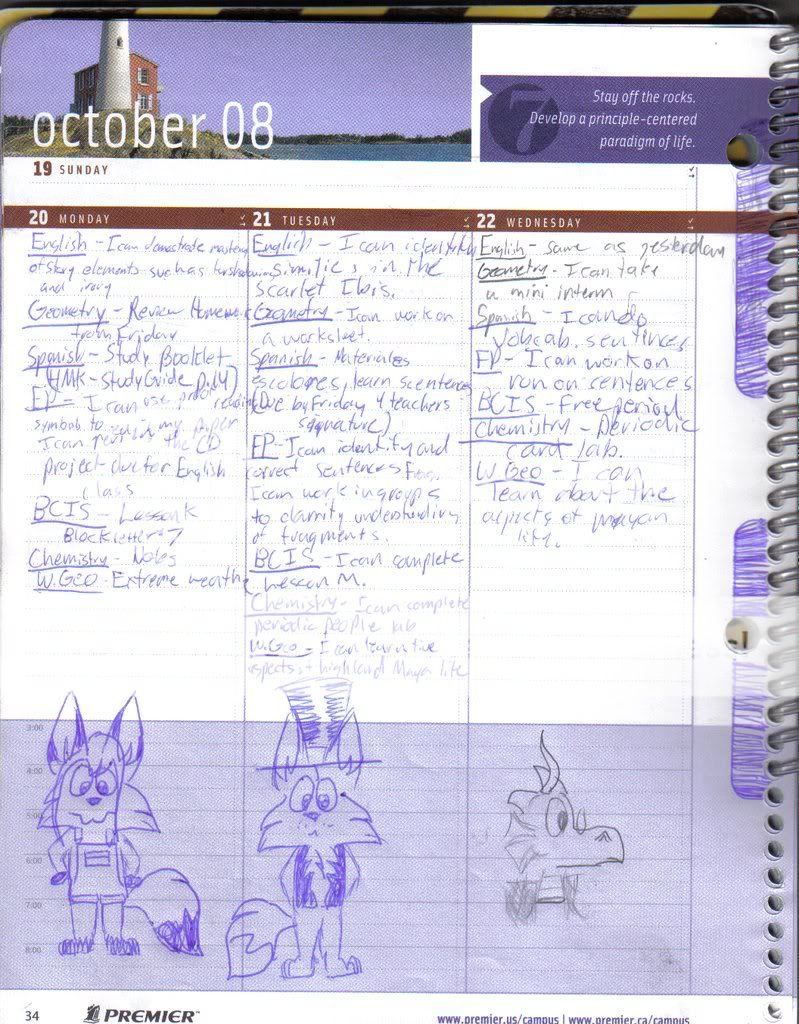 october 08
7
Stay off the rocks.
Develop a principle-centered
paradigm of life.
19 SUNDAY
20 MONDAY
English - I can demostrade mastery
of story elements such as
and irony
Geometry - Review Homework
from Friday
Spanish - Study Booklet
(HMK - Study Guide p.14)
EP - I can use proof reading
symbols to my paper
I can the CD
project due for English
class
BCIS - Lesson K
Block letter 7
Chemistry - Notes
W. Geo - Extreme weathe
21 TUESDAY
English - I can identify
similies in the
Scarlet Ibis.
Geometry - I can work on
a worksheet.
Spanish - Materiales
escolores, learn scentences
(Due by Friday 4 teachers
signature)
EP - I can identity and
correct sentences Frag.
I can work in groups
to clarity understanding
of fragments.
BCIS - I can complete
Lesson M.
Chemistry - I can complete
periodic people lab
W. Geo - I can learn the
aspects of highland Maya life
22 WEDNESDAY
English - same as yesterday
Geometry - I can take
a mini interm
Spanish - I can do
Vobcab. sentinces
EP - I can work on
run on centences
BCIS - Free period
Chemistry - Periodic
card lab.
W. Geo - I can
learn about the
aspects of mayan
life.
3:00
4:00
5:00
6:00
7:00
8:00
34 PREMIER™
www.premier.us/campus | www.premier.ca/campus